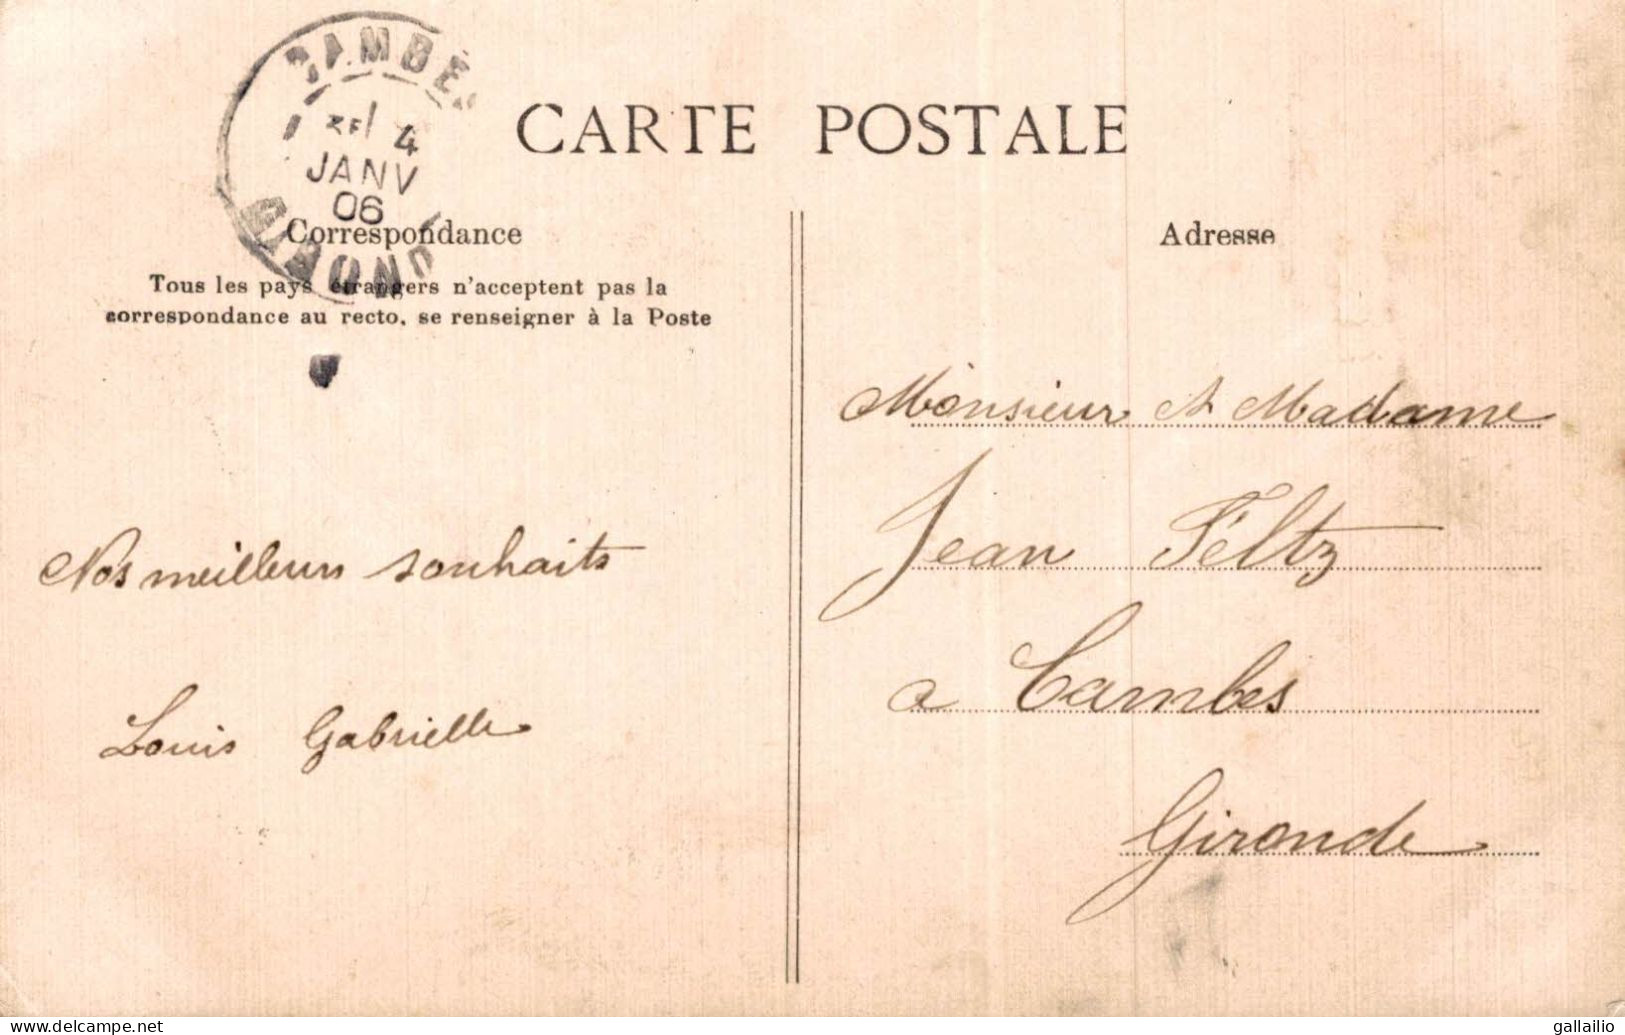 CAMBES
4
JANV
06
GIRONDE
CARTE POSTALE
Correspondance
Tous les pays étrangers n'acceptent pas la
correspondance au recto, se renseigner à la Poste
Nos meilleurs souhaits
Louis Gabrielle
Adresse
Monsieur et Madame
Jean Féltz
a Cambes
Gironde
www.delcampe.net
gallailio